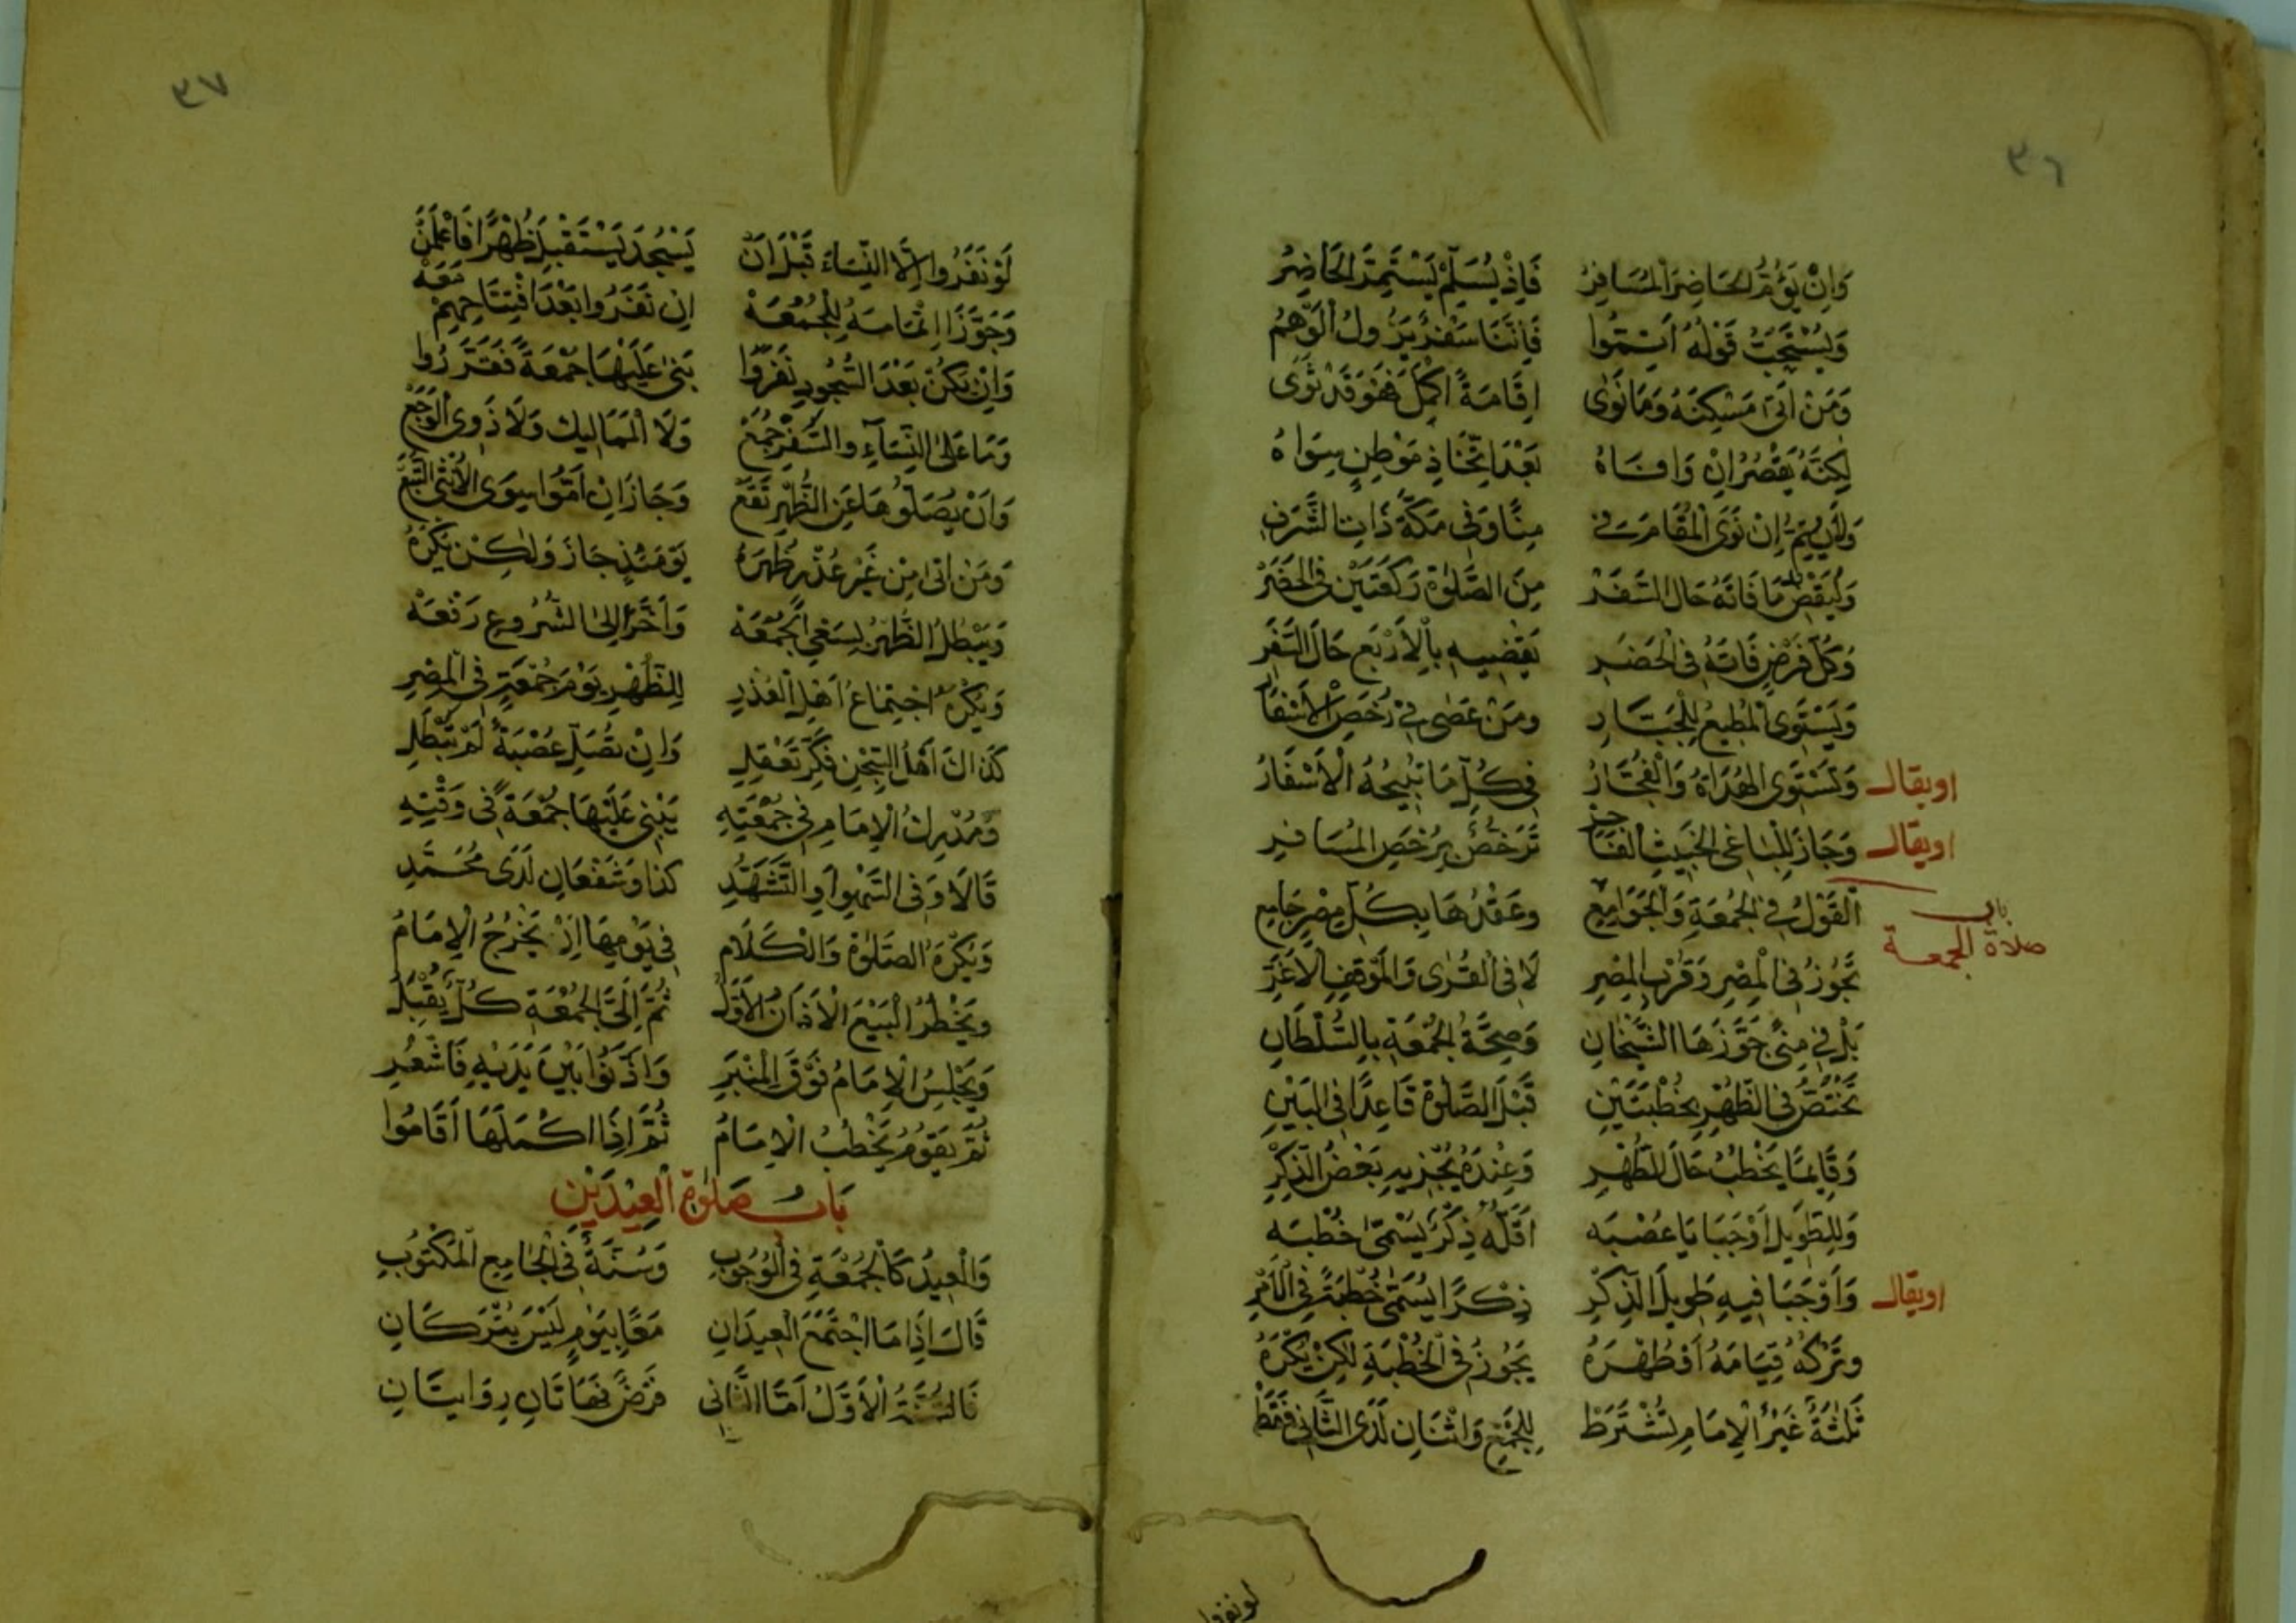 ٣٦
وَاِنْ يَؤُمَّ الحَاضِرَ الْمُسَافِرُ فَاِذْ يُسَلِّمُ يَسْتَتِمُّ الحَاضِرُ
وَيُسْتَحَبُّ قَوْلُهُ اَتِمُّوا فَاِنَّنَا سَفْرٌ يَزُولُ الْوَهْمُ
وَمَنْ اَتٰى مَسْكِنَهُ وَمَا نَوٰى اِقَامَةً اَكْمَلَ فَهْوَ قَدْ ثَوٰى
لٰكِنَّهُ يَقْصُرُ اِنْ وَافَاهُ بَعْدَ اتِّخَاذِ مَوْطِنٍ سِوَاهُ
وَلَا يُتِمُّ اِنْ نَوَى الْمُقَامَ فِى مِنًا وَفِى مَكَّةَ ذَاتِ الشَّرَفِ
وَلْيَقْضِ مَا فَاتَهُ حَالَ السَّفَرْ مِنَ الصَّلٰوةِ رَكْعَتَيْنِ فِى الحَضَرْ
وَكُلُّ فَرْضٍ فَاتَهُ فِى الحَضَرِ يَقْضِيهِ بِالْاَرْبَعِ حَالَ السَّفَرِ
وَيَسْتَوِى الْمُطِيعُ لِلْجَبَّارِ وَمَنْ عَصٰى فِى رُخَصِ الْاَسْفَارِ
او يقال وَتَسْتَوِى الهُدَاةُ وَالْفُجَّارُ فِى كُلِّ مَا تُبِيحُهُ الْاَسْفَارُ
او يقال وَجَازَ لِلْبَاغِى الخَبِيثِ الْفَاجِرِ تَرَخُّصٌ بِرُخَصِ المُسَافِرِ
باب صلاة الجمعة
اَلْقَوْلُ فِى الجُمُعَةِ وَالْجَوَامِعِ وَعَقْدُهَا بِكُلِّ مِصْرٍ جَامِعِ
تَجُوزُ فِى الْمِصْرِ وَقُرْبِ المِصْرِ لَا فِى الْقُرٰى وَالْمَوْقِفِ الْاَغَرِّ
بَلْ فِى مِنًى جَوَّزَهَا الشَّيْخَانِ وَصِحَّةُ الجُمْعَةِ بِالسُّلْطَانِ
تَخْتَصُّ فِى الظُّهْرِ بِخُطْبَتَيْنِ قَبْلَ الصَّلٰوةِ قَاعِدًا فِى الْبَيْنِ
وَقَايِمًا يَخْطُبُ حَالَ الطُّهْرِ وَعِنْدَهُ يُجْزِيهِ بَعْضُ الذِّكْرِ
وَلِلطَّوِيلِ اَوْجَبَا يَا عُصْبَه اَقَلُّهُ ذِكْرٌ يُسَمّٰى خُطْبَه
او يقال وَاَوْجَبَا فِيهِ طَوِيلَ الذِّكْرِ ذِكْرًا يُسَمّٰى خُطْبَةً فِى الْاَمْرِ
وَتَرْكُهُ قِيَامَهُ اَوْ طُهْرَهُ يَجُوزُ فِى الْخُطْبَةِ لٰكِنْ يُكْرَهُ
ثَلٰثَةٌ غَيْرُ الْاِمَامِ تُشْتَرَطْ لِلْجَمْعِ وَاثْنَانِ لَدَى الثَّانِى فَقَطْ
لو نفروا
٣٧
لَوْ نَفَرُوا اِلَّا النِّسَاءَ قَبْلَ اَنْ يَسْجُدَ يَسْتَقْبِلُ ظُهْرًا فَاعْلَمَنْ
وَجَوَّزَا اِتْمَامَهُ لِلْجُمُعَهْ اِنْ نَفَرُوا بَعْدَ افْتِتَاحِهِمْ مَعَهْ
وَاِنْ يَكُنْ بَعْدَ السُّجُودِ نَفَرُوا بَنٰى عَلَيْهَا جُمْعَةً فَقَرَّرُوا
وَمَا عَلَى النِّسَآءِ وَالسَّفْرِ جُمَعْ وَلَا الْمَمَالِيكِ وَلَا ذَوِى الْوَجَعْ
وَاَنْ يُصَلُّوهَا عَنِ الظُّهْرِ تَقَعْ وَجَازَ اِنْ اَمُّوا سِوَى الْاُنْثٰى التَّبَعْ
وَمَنْ اَتٰى مِنْ غَيْرِ عُذْرٍ ظُهْرَهُ يَوْمَئِذٍ جَازَ وَلٰكِنْ يُكْرَهُ
وَيَبْطُلُ الظُّهْرُ لِسَعْىِ الجُمُعَهْ وَاَخَّرَا اِلَى الشُّرُوعِ رَفْعَهْ
وَيُكْرَهُ اجْتِمَاعُ اَهْلِ الْعُذْرِ لِلظُّهْرِ يَوْمَ جُمْعَةٍ فِى الْمِصْرِ
كَذَاكَ اَهْلُ السِّجْنِ فَكِّرْ تَعْقِلِ وَاِنْ تُصَلِّ عُصْبَةٌ لَمْ تَبْطُلِ
وَمُدْرِكُ الْاِمَامِ فِى جُمْعَتِهِ يَبْنِى عَلَيْهَا جُمْعَةً فِى وَقْتِهِ
قَالَا وَفِى السَّهْوِ اَوِ التَّشَهُّدِ كَذَا وَشَفْعَانِ لَدَى مُحَمَّدِ
وَيُكْرَهُ الصَّلٰوةُ وَالْكَلَامُ فِى يَوْمِهَا اِذْ يَخْرُجُ الْاِمَامُ
وَيَحْظُرُ الْبَيْعَ الْاَذَانُ الْاَوَّلُ ثُمَّ اِلَى الجُمْعَةِ كُلٌّ يُقْبِلُ
وَيَجْلِسُ الْاِمَامُ فَوْقَ الْمِنْبَرِ وَاَذَّنُوا بَيْنَ يَدَيْهِ فَاشْعُرِ
ثُمَّ يَقُومُ يَخْطُبُ الْاِمَامُ ثُمَّ اِذَا اكْمَلَهَا اَقَامُوا
بَابُ صَلٰوةِ الْعِيدَيْنِ
وَالْعِيدُ كَالْجُمْعَةِ فِى الْوُجُوبِ وَسُنَّةٌ فِى الْجَامِعِ الْمَكْتُوبِ
قَالَ اِذَا مَا اجْتَمَعَ الْعِيدَانِ مَعًا بِيَوْمٍ لَيْسَ يُتْرَكَانِ
فَالسُّنَّةُ الْاَوَّلُ اَمَّا الثَّانِى فَرْضٌ فَهَاتَانِ رِوَايَتَانِ